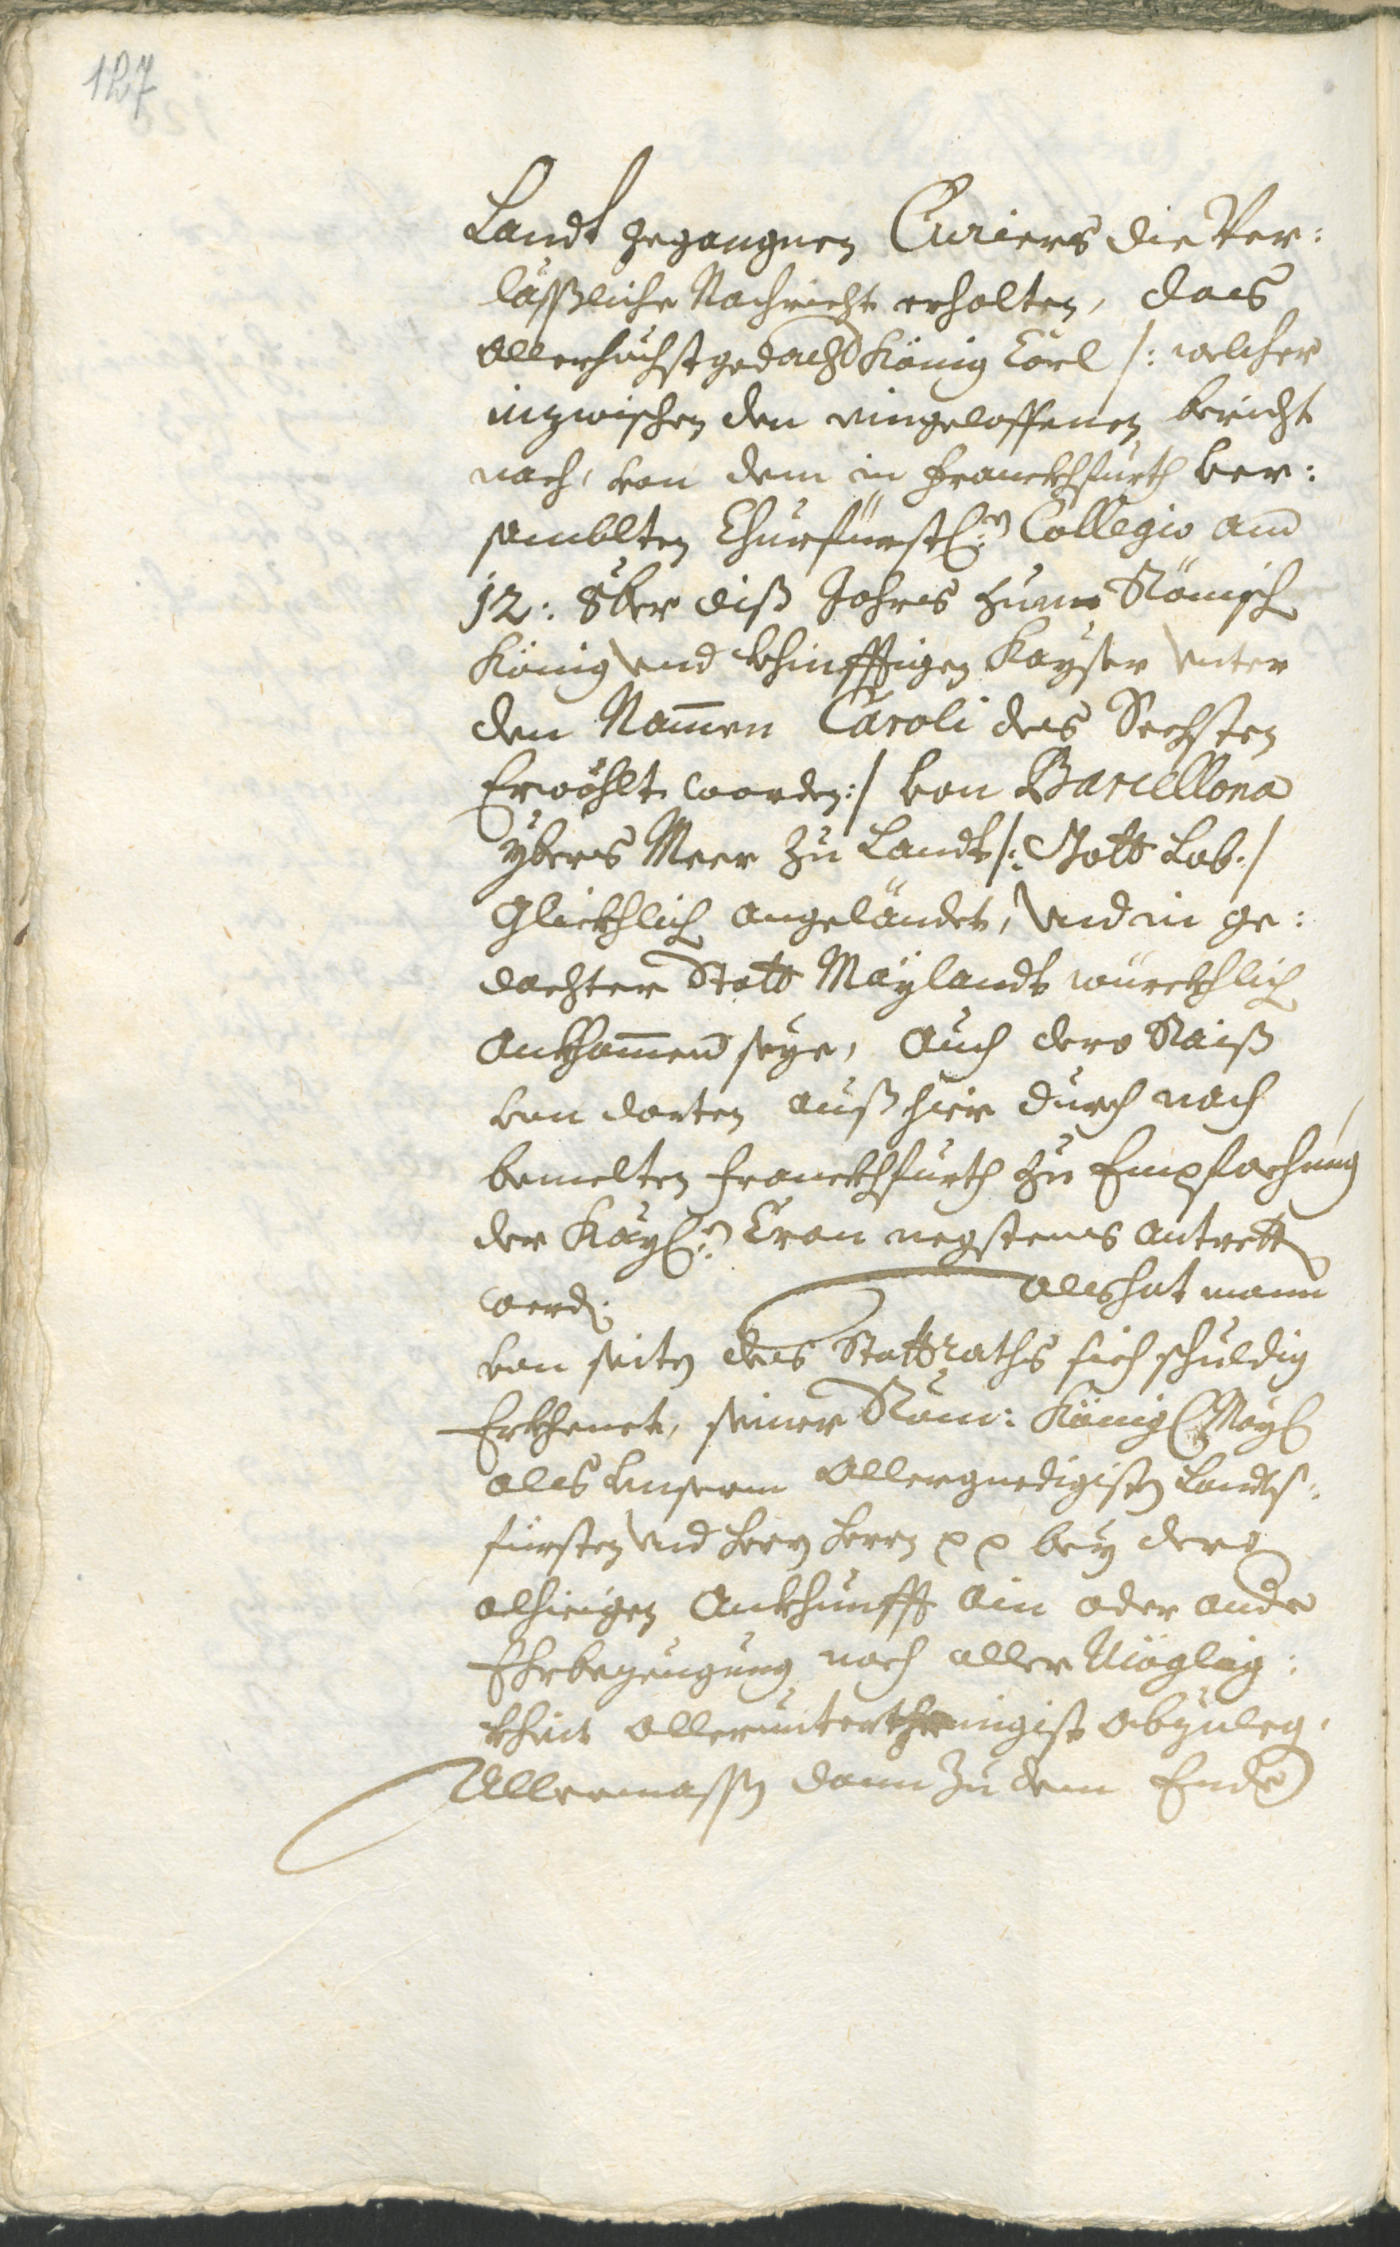 127
Landt gegangnen Curiers die Ver:
läßliche Nachricht erhalten, das
Allerhöchstgedacht König Carl /: welcher
inzwischen den eingeloffenen bericht
nach, von dem in Franckhfurth ver:
samblten Churfürstl: Collegio am
12: 8ber diß Jahres zum Römisch
König vnd khünfftigen Kayser vnter
den Namen Caroli des Sechsten
Erwöhlt worden :/ von Barcellona
ybers Meer zu Landt /: Gott Lob :/
Glickhlich angeländet, vnd in ge:
dachter Statt Maylandt würckhlich
ankhomen seye, Auch dero Raiß
von dorten auß hier durch nach
bemelten Franckhfurth zu Empfachung
der Kayl: Cron negstens antretten
werd: als hat mann
von seiten des Stattraths sich schuldig
Erkhenet, seiner Röm: Königl May:
als vnserm Allergnedigisten Landts:
fürsten vnd Herrn Herrn pp bey dero
alhieigen Ankhunfft ain oder andre
Ehrbezeugung nach aller Möglig:
kheit allerunterthenigist abzuleg.
Allermassen dann zu dem Ende